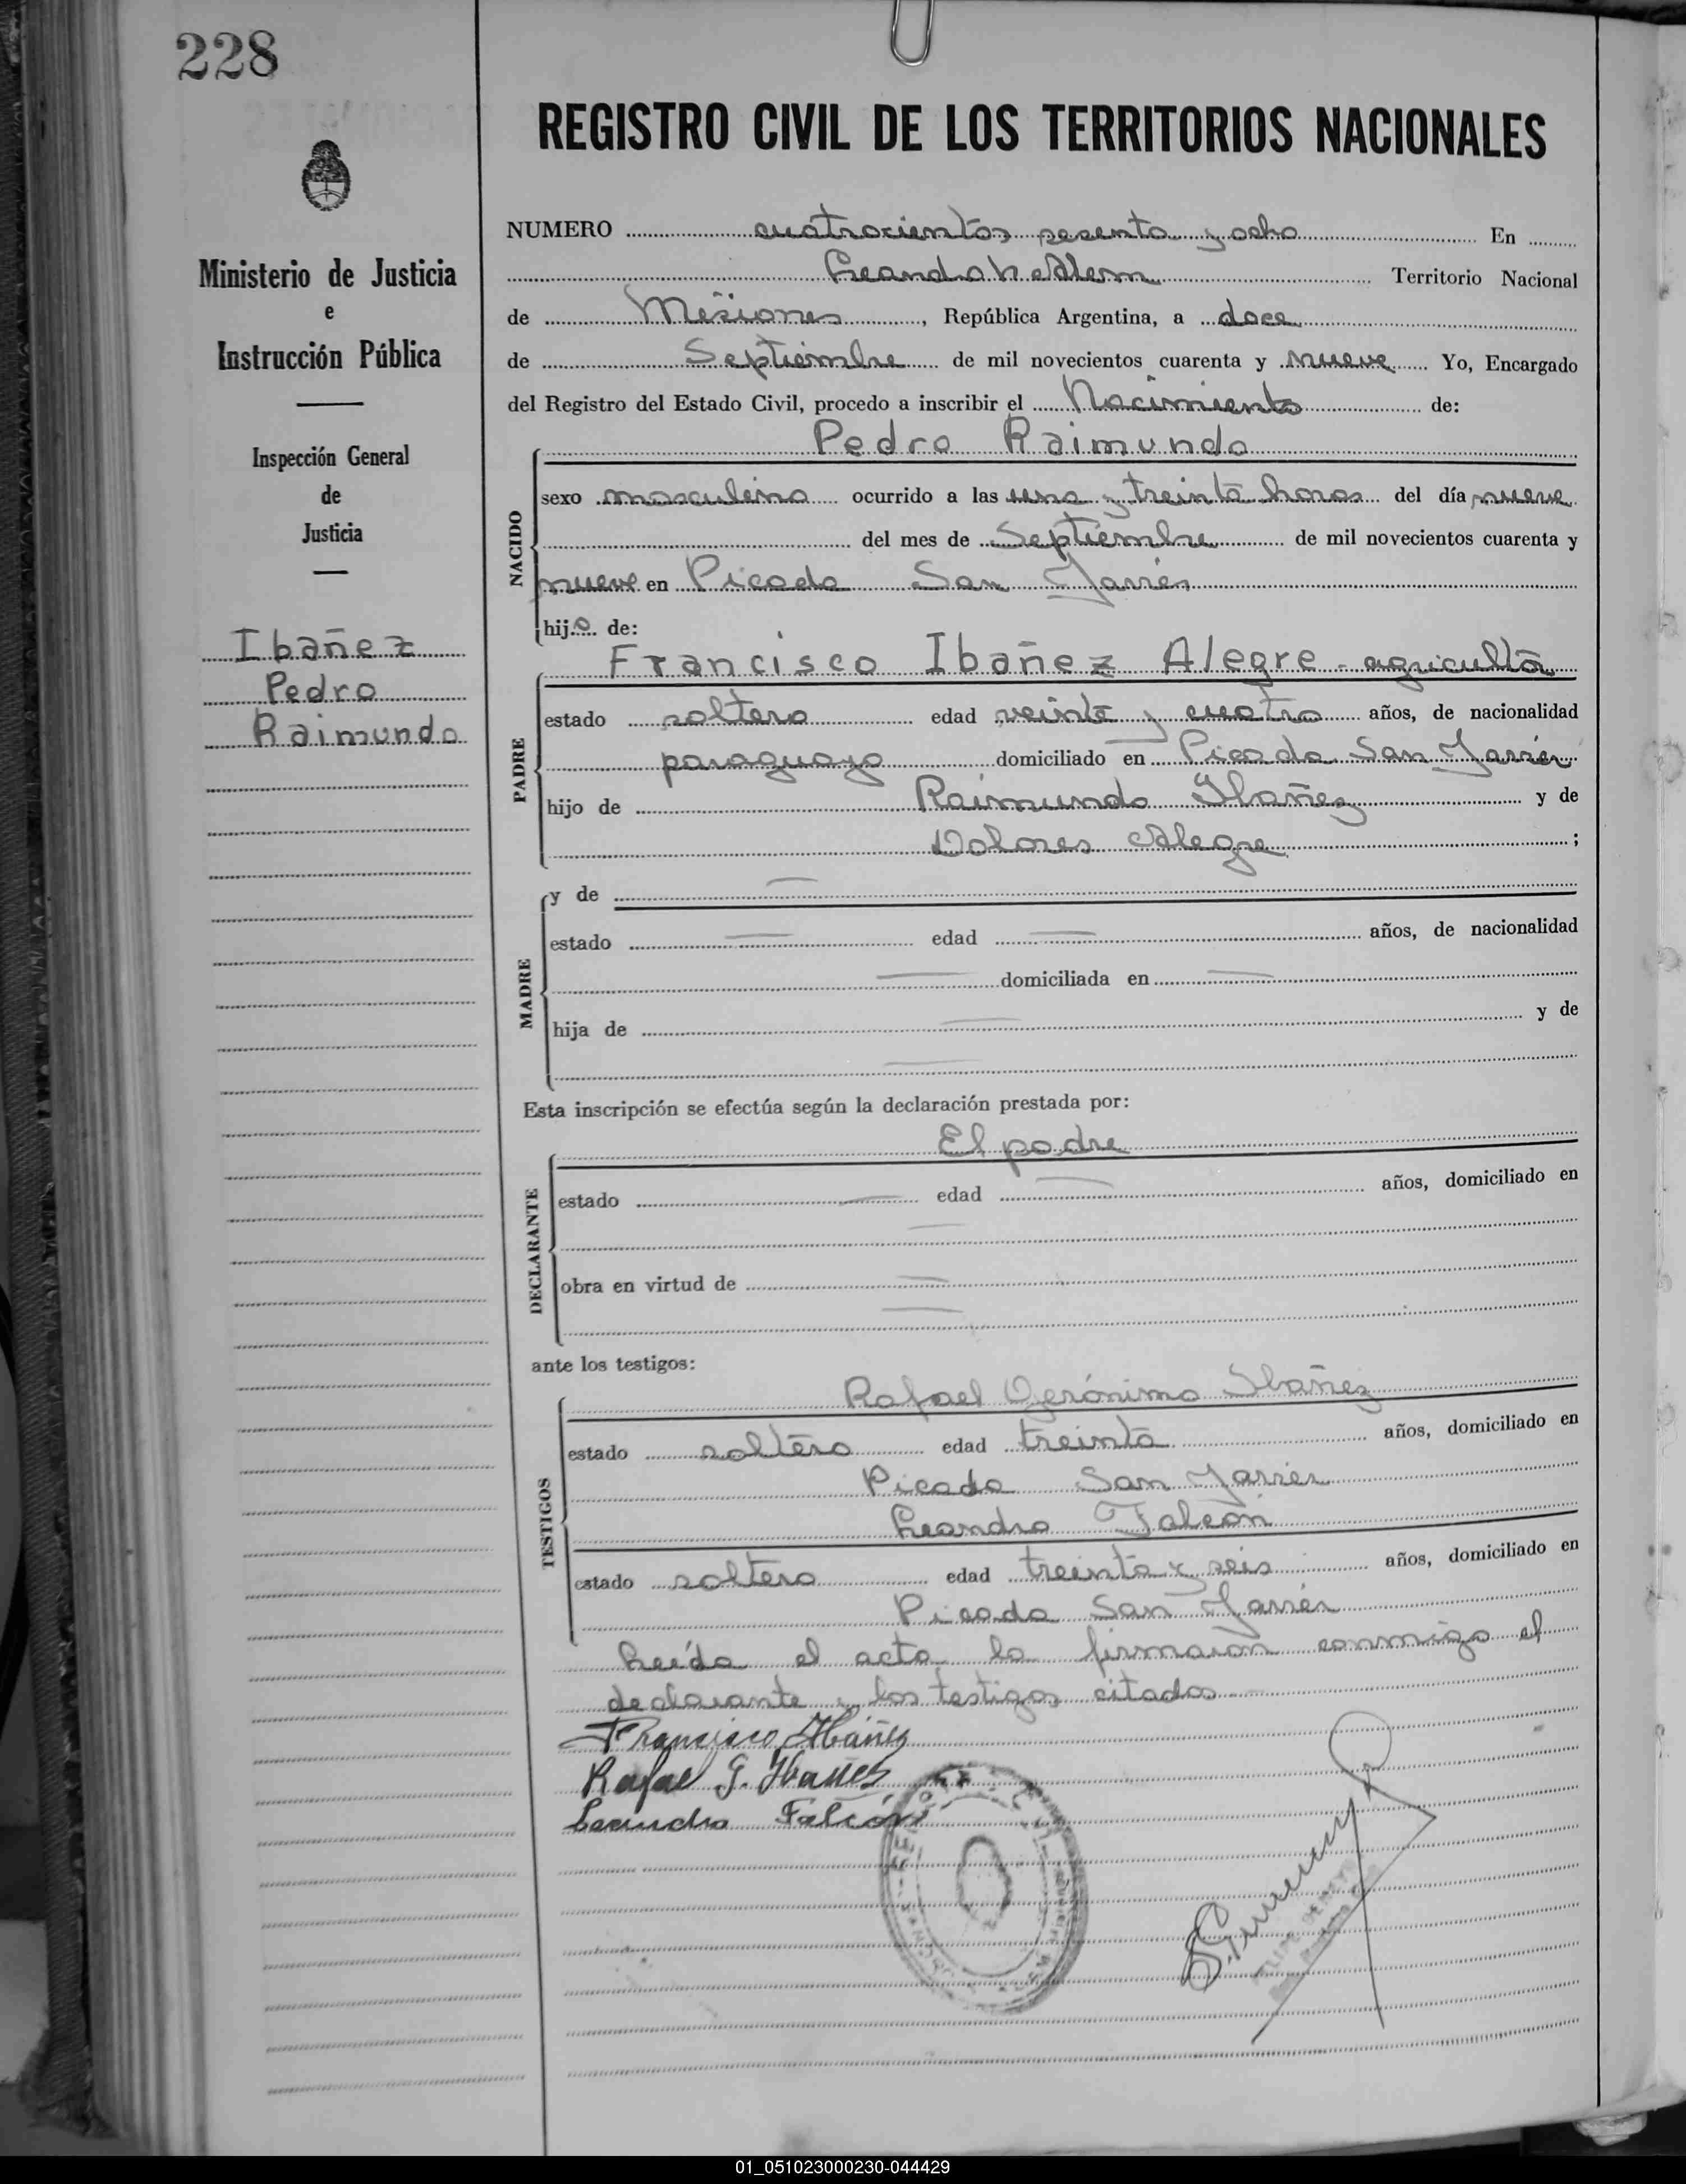 228
REGISTRO CIVIL DE LOS TERRITORIOS NACIONALES
Ministerio de Justicia
e
Instrucción Pública
Inspección General
de
Justicia
Ibañez
Pedro
Raimundo
NUMERO cuatrocientos sesenta y ocho En
Leandro N. Alem Territorio Nacional
de Misiones, República Argentina, a doce
de Septiembre de mil novecientos cuarenta y nueve Yo, Encargado
del Registro del Estado Civil, procedo a inscribir el Nacimiento de:
Pedro Raimundo
NACIDO
sexo masculino ocurrido a las una y treinta horas del día nueve
del mes de Septiembre de mil novecientos cuarenta y
nueve en Picada San Javier
hijo de:
Francisco Ibañez Alegre - agricultor
PADRE
estado soltero edad veinte y cuatro años, de nacionalidad
paraguayo domiciliado en Picada San Javier
hijo de Raimundo Ibañez y de
Dolores Alegre ;
MADRE
y de —
estado — edad — años, de nacionalidad
— domiciliada en —
hija de — y de
—
Esta inscripción se efectúa según la declaración prestada por:
El padre
DECLARANTE
estado — edad — años, domiciliado en
—
obra en virtud de —
—
ante los testigos:
Rafael Gerónimo Ibañez
TESTIGOS
estado soltero edad treinta años, domiciliado en
Picada San Javier
Leandro Falcón
estado soltero edad treinta y seis años, domiciliado en
Picada San Javier
Leída el acta la firmaron conmigo el
declarante y los testigos citados
Francisco Ibáñez
Rafael G. Ibañes
Leandro Falcón
01_051023000230-044429